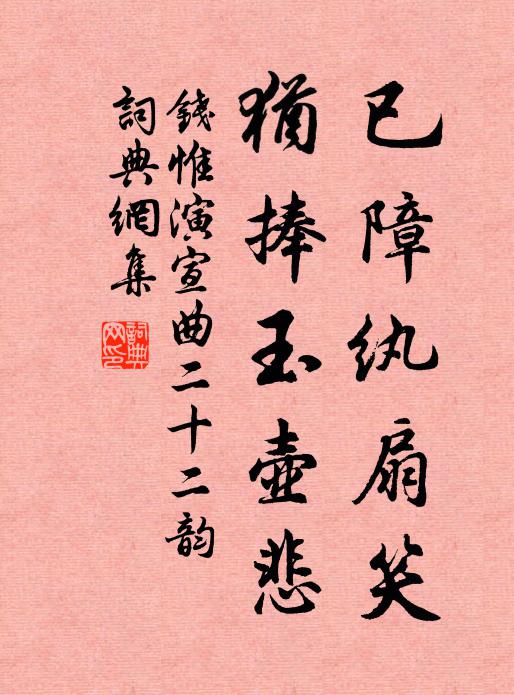 已障纨扇笑
猶捧玉壺悲
錢惟演宣曲二十二韵
詞典網集
詞典网印